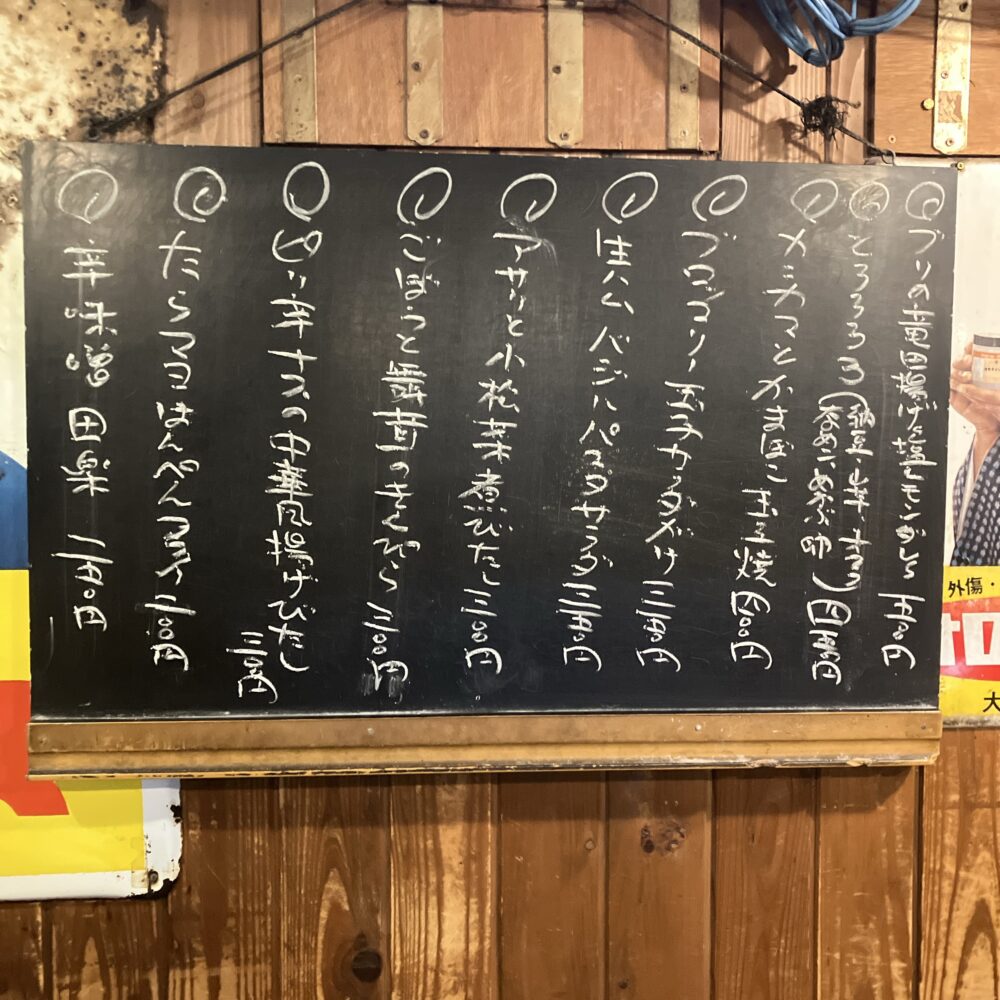 ブリの竜田揚げと塩レモンダレ 五〇〇円
とろろろろ(納豆・山芋・オクラ
なめこ、めかぶ、卵)四五〇円
メヒカマとかまぼこ 玉子焼 四〇〇円
ブロッコリー 玉子カッタがけ 三五〇円
生ハム バジル パスタサラダ 三五〇円
アサリと小松菜煮びたし 三〇〇円
ごぼうと舞茸のきんぴら 三〇〇円
ピリ辛ナスの中華風揚げびたし
三〇〇円
たらマヨはんぺんフライ 三〇〇円
辛味噌 田楽 二五〇円
外傷・
大